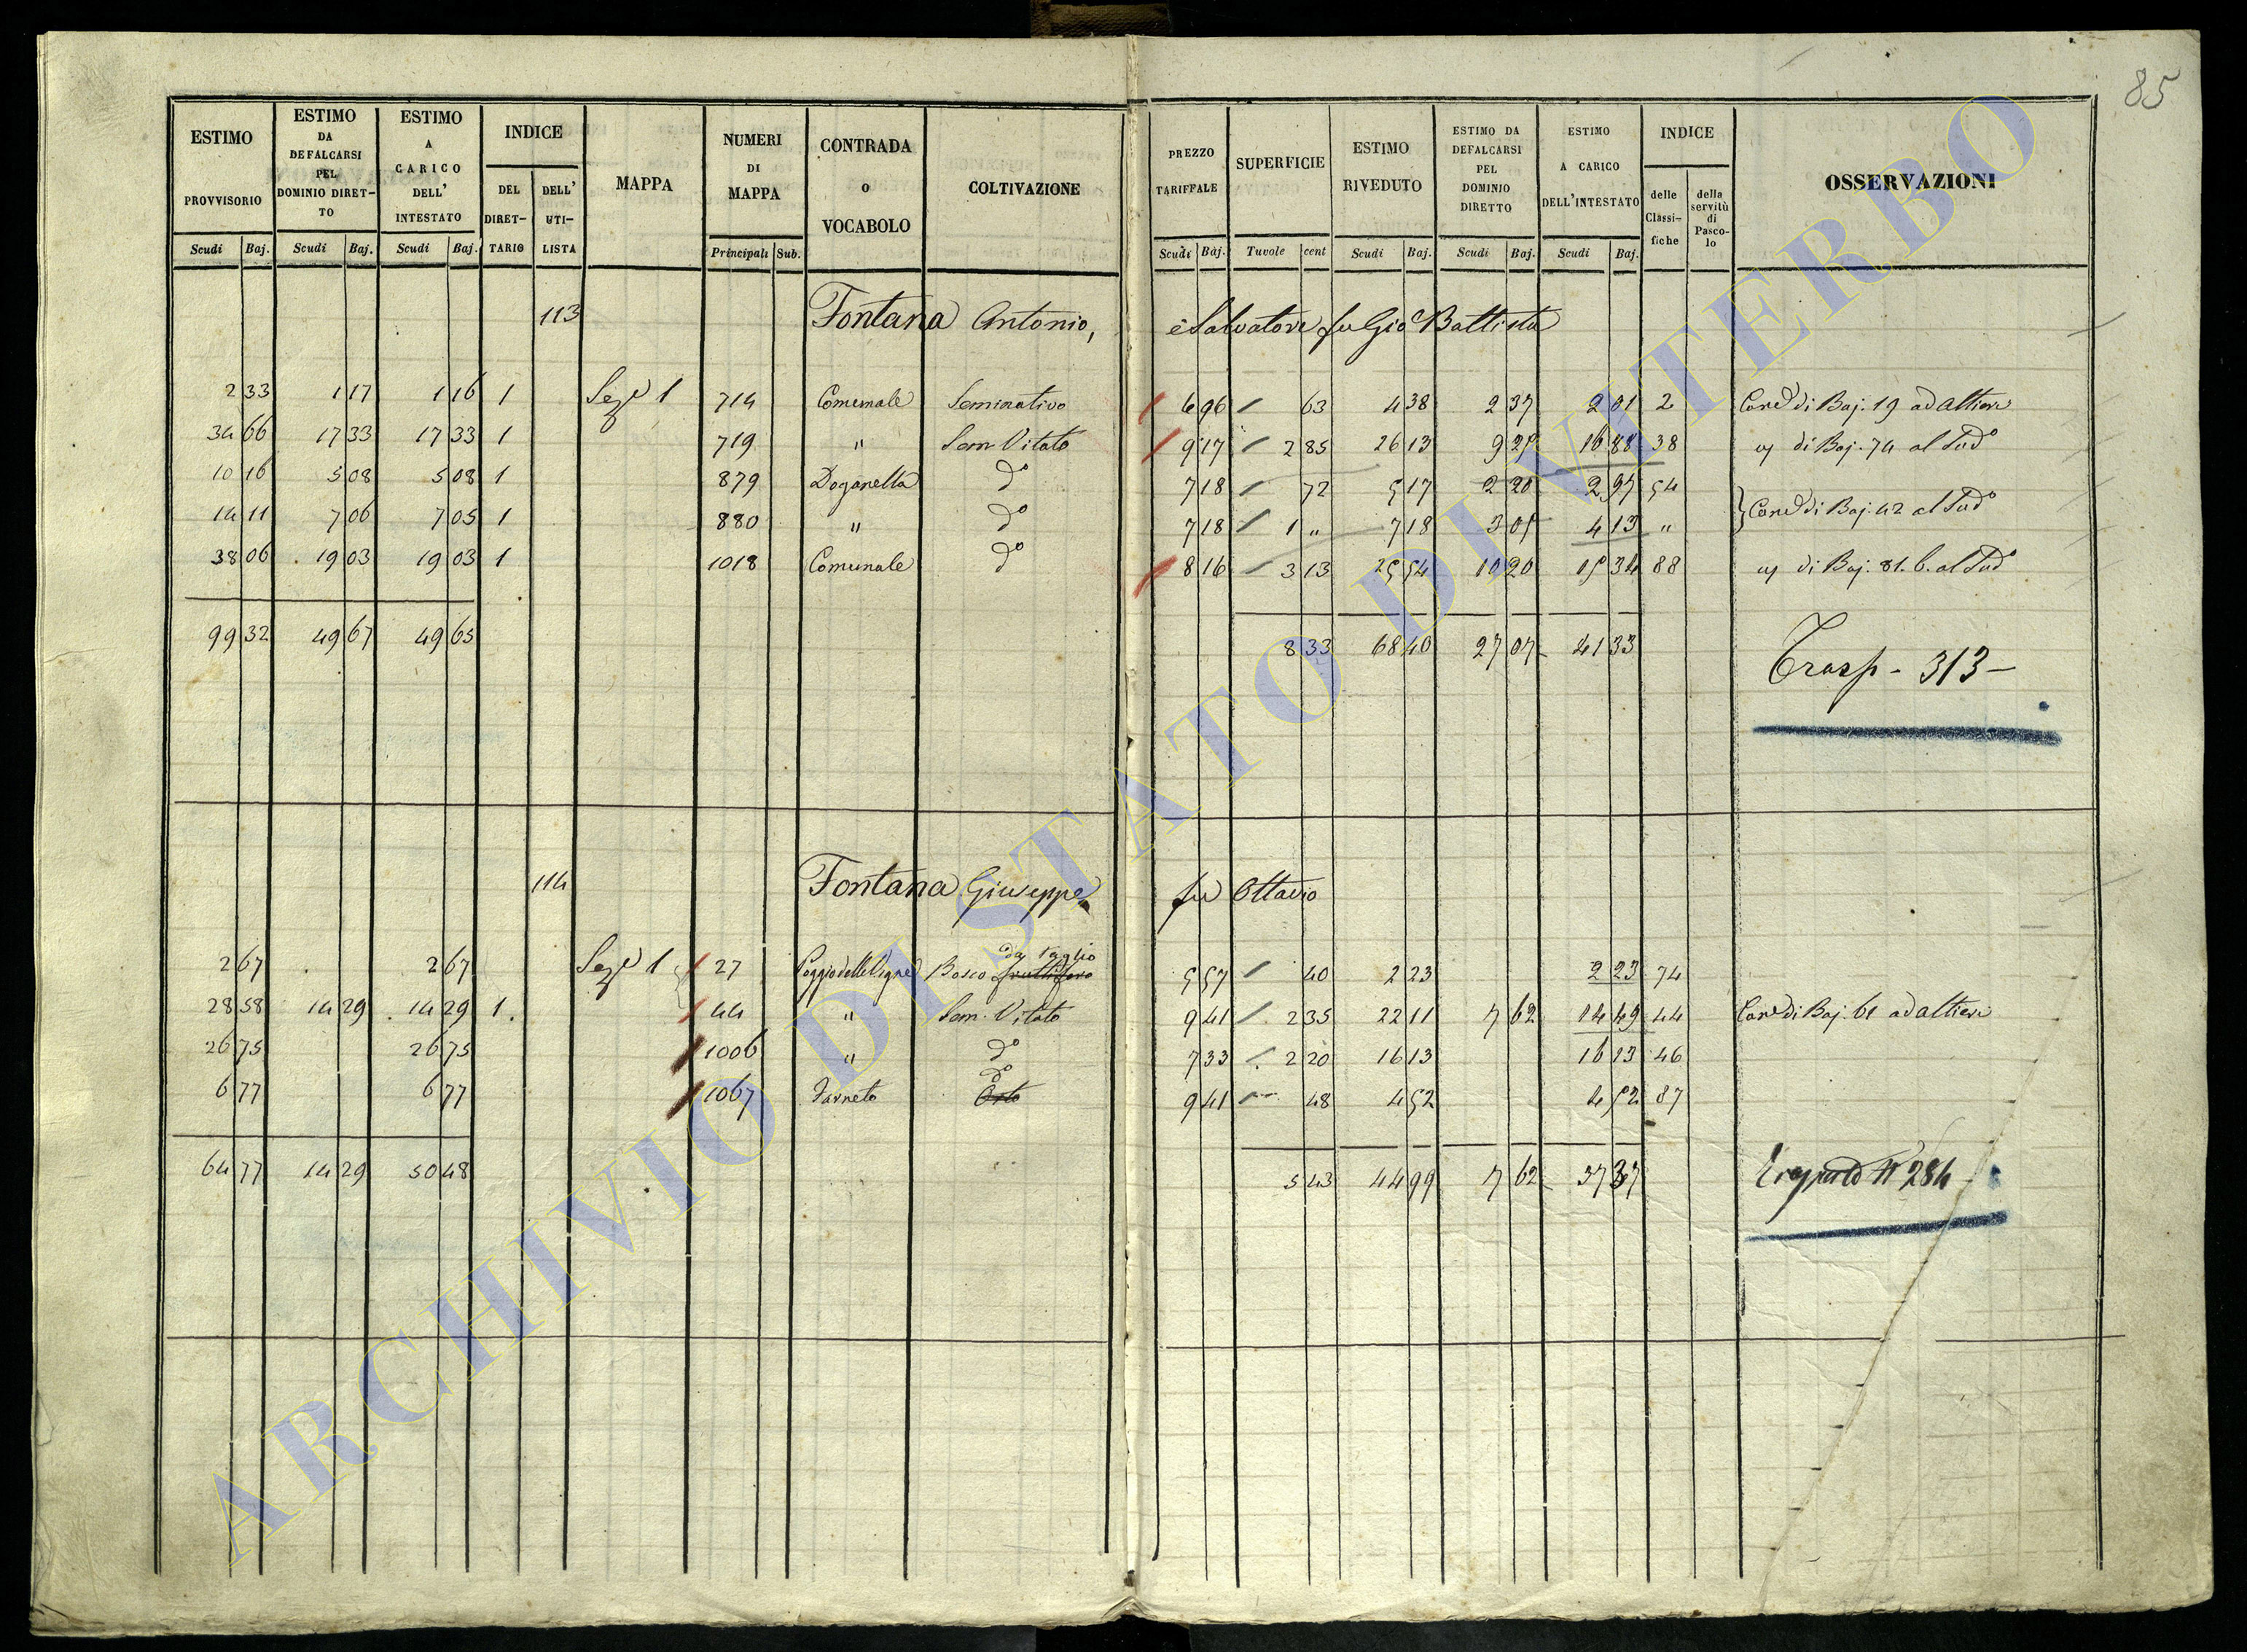 85
ESTIMO PROVVISORIO Scudi Baj.
ESTIMO DA DEFALCARSI PEL DOMINIO DIRET- TO Scudi Baj.
ESTIMO A CARICO DELL' INTESTATO Scudi Baj.
INDICE DEL DIRET- TARIO DELL' UTI- LISTA
MAPPA
NUMERI DI MAPPA Principali Sub.
CONTRADA O VOCABOLO
COLTIVAZIONE
PREZZO TARIFFALE Scudi Baj.
SUPERFICIE Tavole cent
ESTIMO RIVEDUTO Scudi Baj.
ESTIMO DA DEFALCARSI PEL DOMINIO DIRETTO Scudi Baj.
ESTIMO A CARICO DELL'INTESTATO Scudi Baj.
INDICE delle Classi- fiche della servitù di Pasco- lo
OSSERVAZIONI
113 Fontana Antonio, e Salvatore fu Gio Battista
2 33 1 17 1 16 1 Sez.e 1 714 Comunale Seminativo 6 96 63 4 38 2 37 2 01 2 di Baj. 19 ad Altieri
34 66 17 33 17 33 1 719 " Sem Vitato 9 17 2 85 26 13 9 25 16 88 38 di Baj. 74 al Sud.o
10 16 5 08 5 08 1 879 Doganella d.o 7 18 72 5 17 2 20 2 97 54
14 11 7 06 7 05 1 880 " d.o 7 18 1 " 7 18 3 05 4 13 " di Baj. 42 al Sud.o
38 06 19 03 19 03 1 1018 Comunale d.o 8 16 3 13 25 54 10 20 15 34 88 di Baj. 81. b. al Sud.o
99 32 49 67 49 65 8 33 68 40 27 07 41 33
Trasp - 313 -
114 Fontana Giuseppe fu Ottavio
da Taglio
2 67 2 67 Sez.e 1 27 Poggio delle Vigne Bosco fruttifero 5 57 40 2 23 2 23 74
28 58 14 29 14 29 1. 44 " Sem. Vitato 9 41 2 35 22 11 7 62 14 49 44 di Baj. 61 ad Altieri
26 75 26 75 1006 " d.o 7 33 2 20 16 13 16 13 46
d.o
6 77 6 77 1067 Farneto Orto 9 41 48 4 52 4 52 87
64 77 14 29 50 48 5 43 44 99 7 62 37 37
N 284
ARCHIVIO DI STATO DI VITERBO